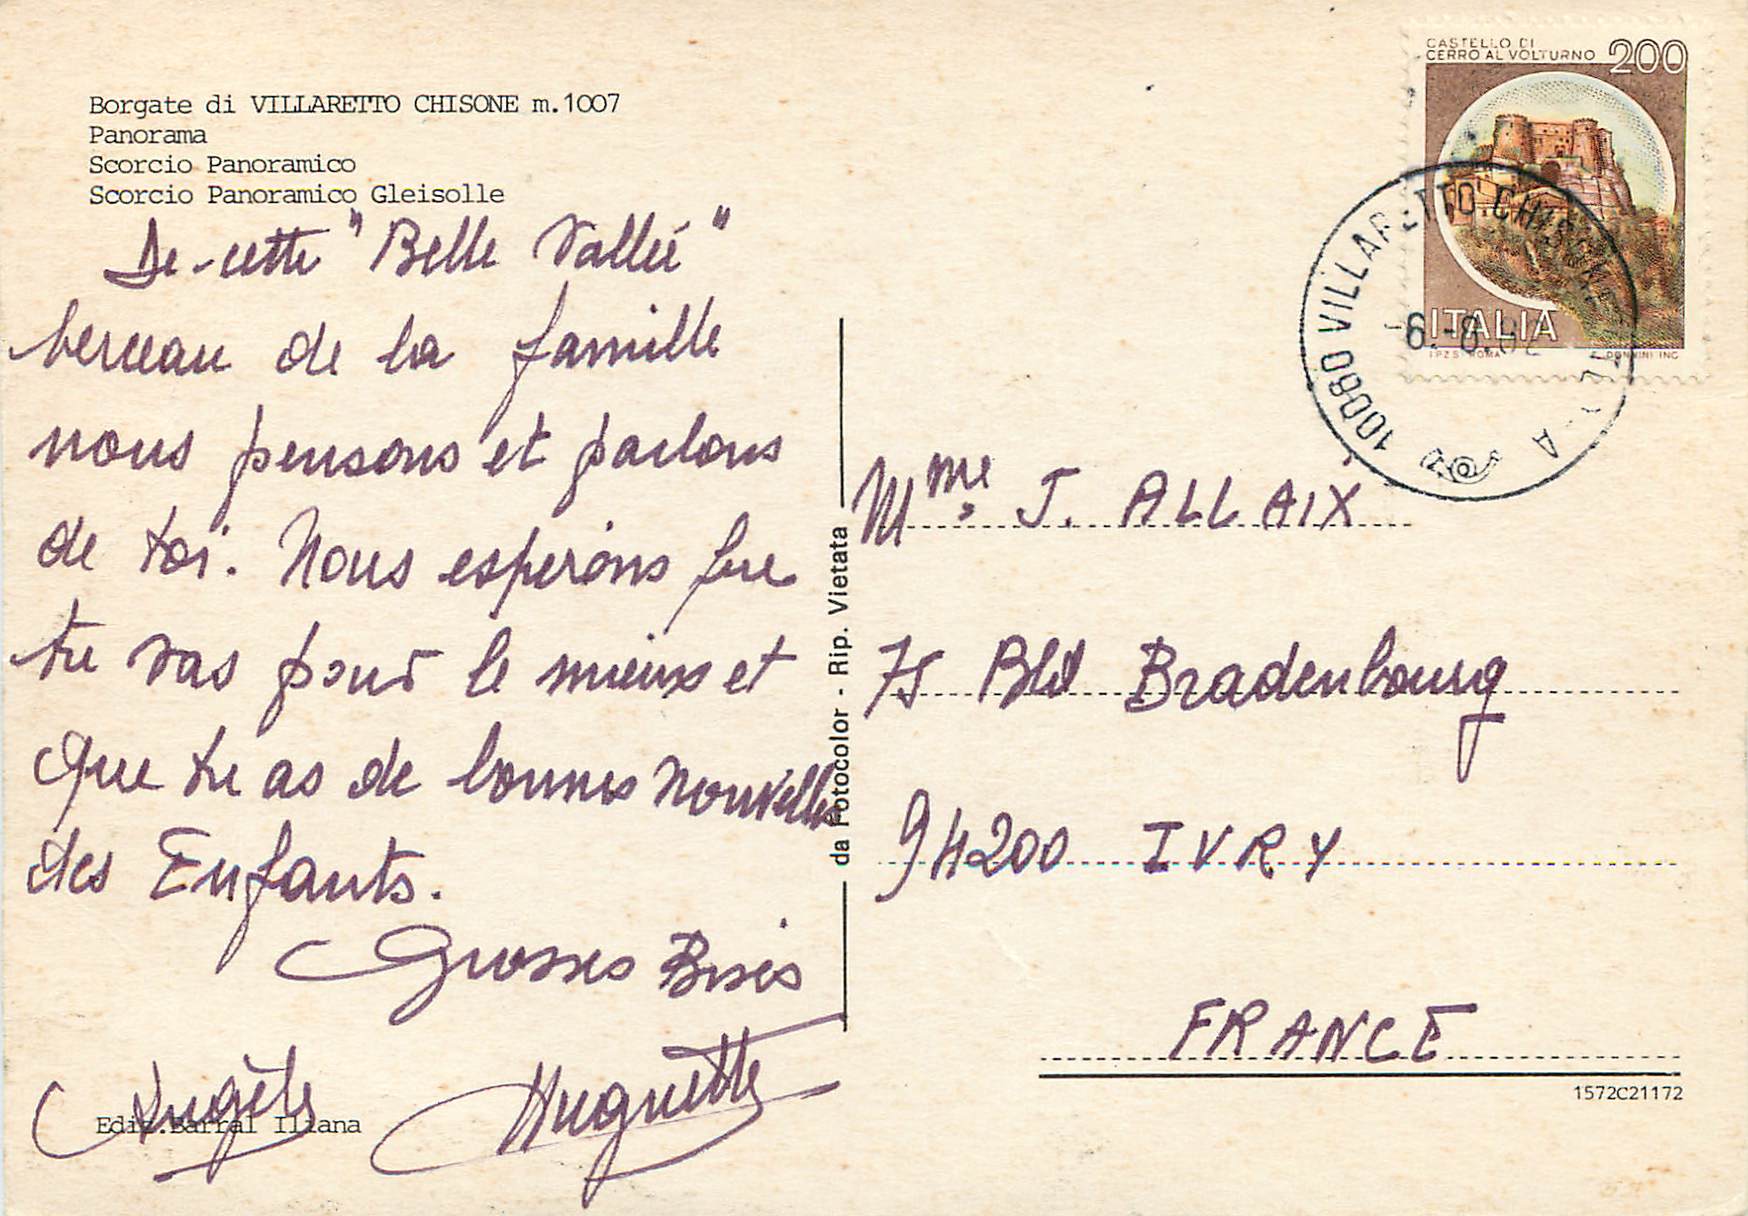 Borgate di VILLARETTO CHISONE m.1007
Panorama
Scorcio Panoramico
Scorcio Panoramico Gleisolle
De cette "Belle Vallée"
berceau de la famille
nous pensons et parlons
de toi. Nous esperons que
tu vas pour le mieux et
que tu as de bonnes nouvelles
des Enfants.
Grosses Bises
Angèle Huguette
Ediz.Barral Iliana
da Fotocolor - Rip. Vietata
CASTELLO DI
CERRO AL VOLTURNO 200
ITALIA
I.P.Z.S. ROMA E. DONNINI INC.
10060 VILLARETTO CHISONE
6.-8.82
Mme J. ALLAIX
75 Bld Bradenbourg
94200 IVRY
FRANCE
1572C21172